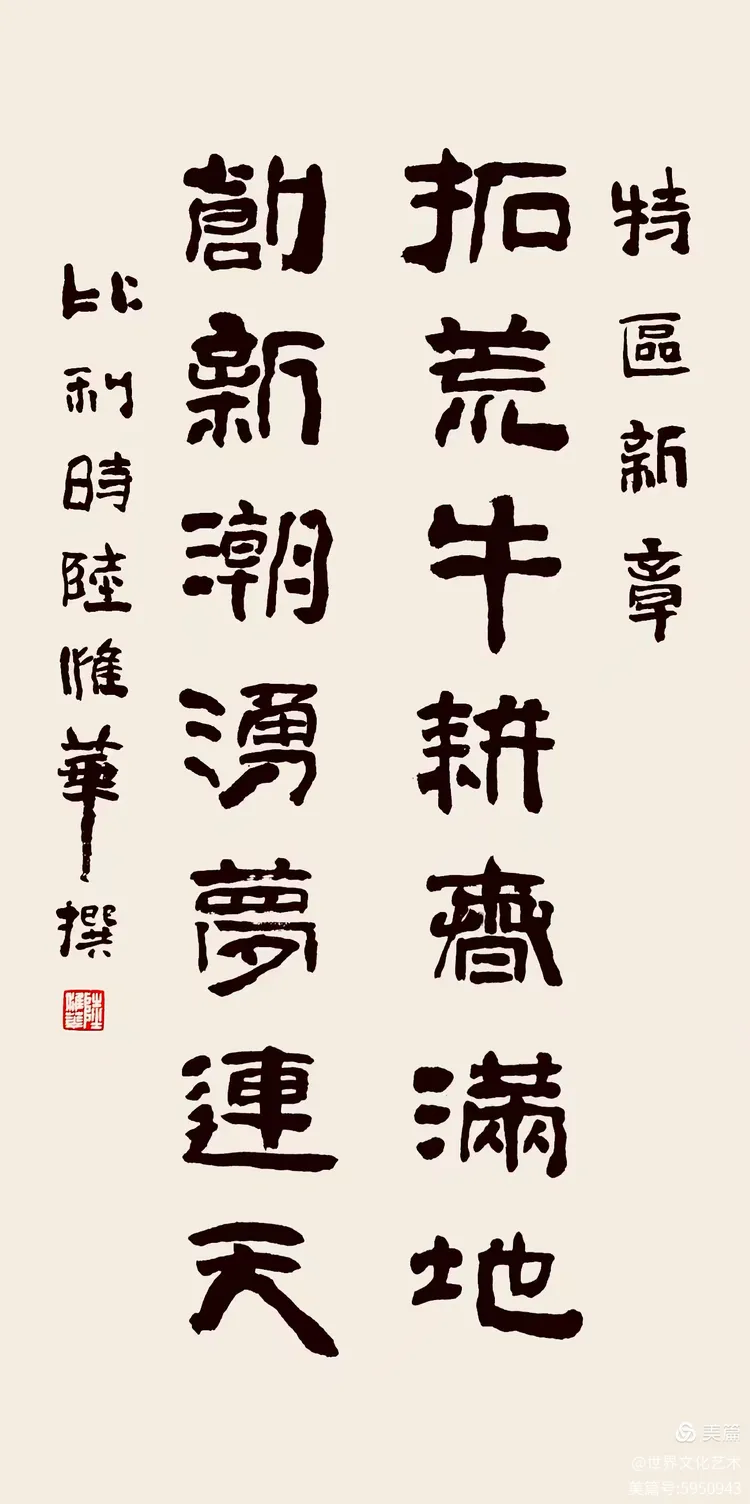 特區新章
拓荒牛耕滿地
創新潮湧夢連天
比利時陸惟華撰
陸惟華
美篇
@世界文化艺术
美篇号:5950943